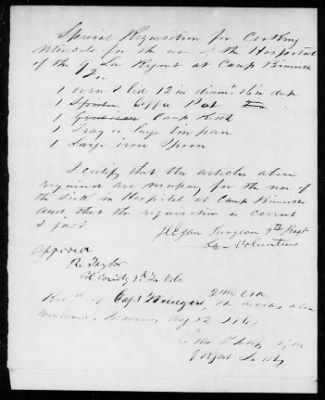 Special Requisition for Cooking
Utensils for the use of the Hospital
of the 9 La Regmt at Camp
Viz
1 oven & lid 12 in diamr 6 in deep
1 Coffee Pot
1 Camp Kettle
1 Tray or large tin pan
1 Large iron Spoon
I certify that the articles above
required are necessary for the use of
the Sick in Hospital at Camp
and that the requisition is correct
& just
Surgeon 9th Regt
La Volunteers
Approved
R. Taylor
Col Comdg 9th La Vols
Recd of Capt the above
Manassas Aug 12 1861